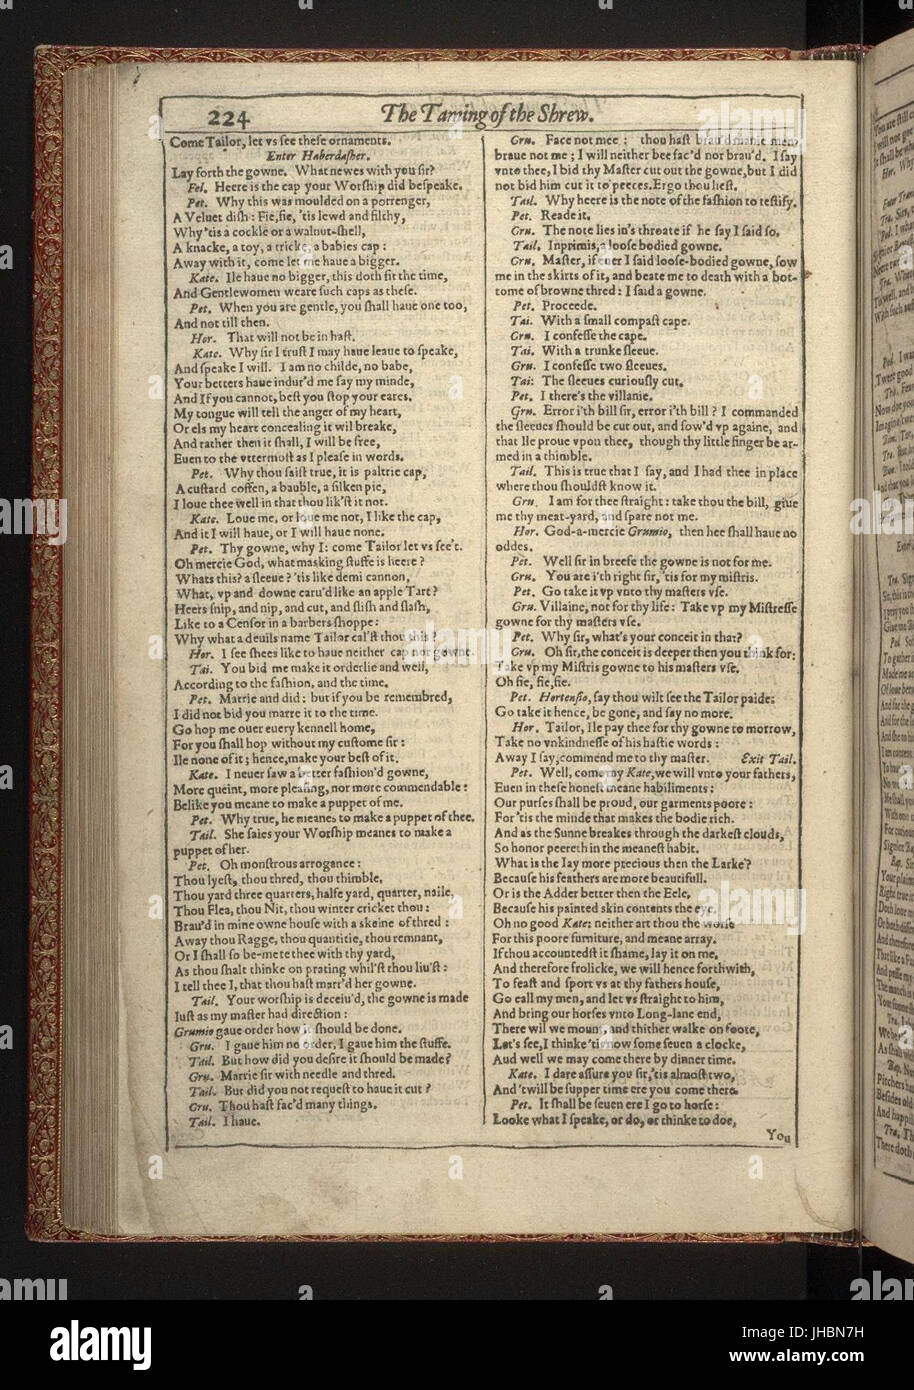 224
The Taming of the Shrew.
Come Tailor, let vs ſee theſe ornaments.
Enter Haberdaſher.
Lay forth the gowne. What newes with you ſir?
Fel. Heere is the cap your Worſhip did beſpeake.
Pet. Why this was moulded on a porrenger,
A Veluet diſh: Fie, fie, 'tis lewd and filthy,
Why 'tis a cockle or a walnut-ſhell,
A knacke, a toy, a tricke, a babies cap:
Away with it, come let me haue a bigger.
Kate. Ile haue no bigger, this doth fit the time,
And Gentlewomen weare ſuch caps as theſe.
Pet. When you are gentle, you ſhall haue one too,
And not till then.
Hor. That will not be in haſt.
Kate. Why ſir I truſt I may haue leaue to ſpeake,
And ſpeake I will. I am no childe, no babe,
Your betters haue indur'd me ſay my minde,
And If you cannot, beſt you ſtop your eares.
My tongue will tell the anger of my heart,
Or els my heart concealing it wil breake,
And rather then it ſhall, I will be free,
Euen to the vttermoſt as I pleaſe in words.
Pet. Why thou ſaiſt true, it is paltrie cap,
A cuſtard coffen, a bauble, a ſilken pie,
I loue thee well in that thou lik'ſt it not.
Kate. Loue me, or loue me not, I like the cap,
And it I will haue, or I will haue none.
Pet. Thy gowne, why I: come Tailor let vs ſee't.
Oh mercie God, what masking ſtuffe is heere?
Whats this? a ſleeue? 'tis like demi cannon,
What, vp and downe caru'd like an apple Tart?
Heers ſnip, and nip, and cut, and ſliſh and ſlaſh,
Like to a Cenſor in a barbers ſhoppe:
Why what a deuils name Tailor cal'ſt thou this?
Hor. I ſee ſhees like to haue neither cap nor gowne.
Tai. You bid me make it orderlie and well,
According to the faſhion, and the time.
Pet. Marrie and did: but if you be remembred,
I did not bid you marre it to the time.
Go hop me ouer euery kennell home,
For you ſhall hop without my cuſtome ſir:
Ile none of it; hence, make your beſt of it.
Kate. I neuer ſaw a better faſhion'd gowne,
More queint, more pleaſing, nor more commendable:
Belike you meane to make a puppet of me.
Pet. Why true, he meanes to make a puppet of thee.
Tail. She ſaies your Worſhip meanes to make a
puppet of her.
Pet. Oh monſtrous arrogance:
Thou lyeſt, thou thred, thou thimble,
Thou yard three quarters, halfe yard, quarter, naile,
Thou Flea, thou Nit, thou winter cricket thou:
Brau'd in mine owne houſe with a skeine of thred:
Away thou Ragge, thou quantitie, thou remnant,
Or I ſhall ſo be-mete thee with thy yard,
As thou ſhalt thinke on prating whil'ſt thou liu'ſt:
I tell thee I, that thou haſt marr'd her gowne.
Tail. Your worſhip is deceiu'd, the gowne is made
Iuſt as my maſter had direction:
Grumio gaue order how it ſhould be done.
Gru. I gaue him no order, I gaue him the ſtuffe.
Tail. But how did you deſire it ſhould be made?
Gru. Marrie ſir with needle and thred.
Tail. But did you not requeſt to haue it cut?
Gru. Thou haſt fac'd many things.
Tail. I haue.
Gru. Face not mee: thou haſt brau'd manie men,
braue not me; I will neither bee fac'd nor brau'd. I ſay
vnto thee, I bid thy Maſter cut out the gowne, but I did
not bid him cut it to peeces. Ergo thou lieſt.
Tail. Why heere is the note of the faſhion to teſtify.
Pet. Reade it.
Gru. The note lies in's throate if he ſay I ſaid ſo.
Tail. Inprimis, a looſe bodied gowne.
Gru. Maſter, if euer I ſaid looſe-bodied gowne, ſow
me in the skirts of it, and beate me to death with a bot-
tome of browne thred: I ſaid a gowne.
Pet. Proceede.
Tai. With a ſmall compaſt cape.
Gru. I confeſſe the cape.
Tai. With a trunke ſleeue.
Gru. I confeſſe two ſleeues.
Tai: The ſleeues curiouſly cut.
Pet. I there's the villanie.
Gru. Error i'th bill ſir, error i'th bill? I commanded
the ſleeues ſhould be cut out, and ſow'd vp againe, and
that Ile proue vpon thee, though thy little finger be ar-
med in a thimble.
Tail. This is true that I ſay, and I had thee in place
where thou ſhouldſt know it.
Gru. I am for thee ſtraight: take thou the bill, giue
me thy meat-yard, and ſpare not me.
Hor. God-a-mercie Grumio, then hee ſhall haue no
oddes.
Pet. Well ſir in breefe the gowne is not for me.
Gru. You are i'th right ſir, 'tis for my miſtris.
Pet. Go take it vp vnto thy maſters vſe.
Gru. Villaine, not for thy life: Take vp my Miſtreſſe
gowne for thy maſters vſe.
Pet. Why ſir, what's your conceit in that?
Gru. Oh ſir, the conceit is deeper then you think for:
Take vp my Miſtris gowne to his maſters vſe.
Oh fie, fie, fie.
Pet. Hortenſio, ſay thou wilt ſee the Tailor paide:
Go take it hence, be gone, and ſay no more.
Hor. Tailor, Ile pay thee for thy gowne to morrow,
Take no vnkindneſſe of his haſtie words:
Away I ſay, commend me to thy maſter. Exit Tail.
Pet. Well, come my Kate, we will vnto your fathers,
Euen in theſe honeſt meane habiliments:
Our purſes ſhall be proud, our garments poore:
For 'tis the minde that makes the bodie rich.
And as the Sunne breakes through the darkeſt clouds,
So honor peereth in the meaneſt habit.
What is the Iay more precious then the Larke?
Becauſe his feathers are more beautifull.
Or is the Adder better then the Eele,
Becauſe his painted skin contents the eye.
Oh no good Kate: neither art thou the worſe
For this poore furniture, and meane array.
If thou accountedſt it ſhame, lay it on me,
And therefore frolicke, we will hence forthwith,
To feaſt and ſport vs at thy fathers houſe,
Go call my men, and let vs ſtraight to him,
And bring our horſes vnto Long-lane end,
There wil we mount, and thither walke on foote,
Let's ſee, I thinke 'tis now ſome ſeuen a clocke,
Aud well we may come there by dinner time.
Kate. I dare aſſure you ſir, 'tis almoſt two,
And 'twill be ſupper time ere you come there.
Pet. It ſhall be ſeuen ere I go to horſe:
Looke what I ſpeake, or do, or thinke to doe,
You
alamy stock photo
JHBN7H
www.alamy.com